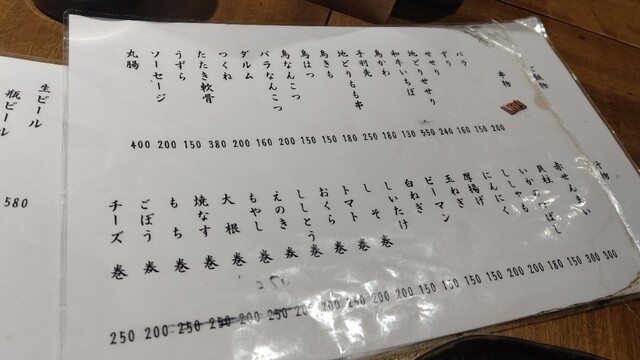 ご飯物
串物
バラ
ずり
せせり
地どりせせり
和牛いちぼ
鳥かわ
手羽先
地どりもも串
鳥きも
鳥はつ
鳥なんこつ
バラなんこつ
ダルム
つくね
たたき軟骨
うずら
ソーセージ
丸腸
400 200 150 380 200 160 200 150 150 180 250 180 130 550 240 160 150 200
汁物
赤せんまい
貝柱
ししゃも
にんにく
厚揚げ
玉ねぎ
ピーマン
白ねぎ
しいたけ
しそ巻
トマト巻
おくら巻
ししとう巻
えのき巻
もやし巻
大根巻
焼なす巻
もち巻
ごぼう巻
チーズ巻
250 200 250 250 200 250 200 200 250 200 200 150 150 150 150 200 200 180 150 300 300
生ビール
瓶ビール
580